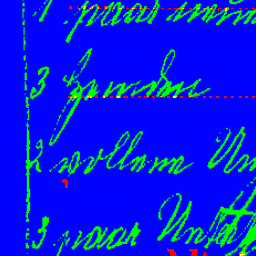 1 paar
3 Hemden
2 wollene Un
3 paar Unt